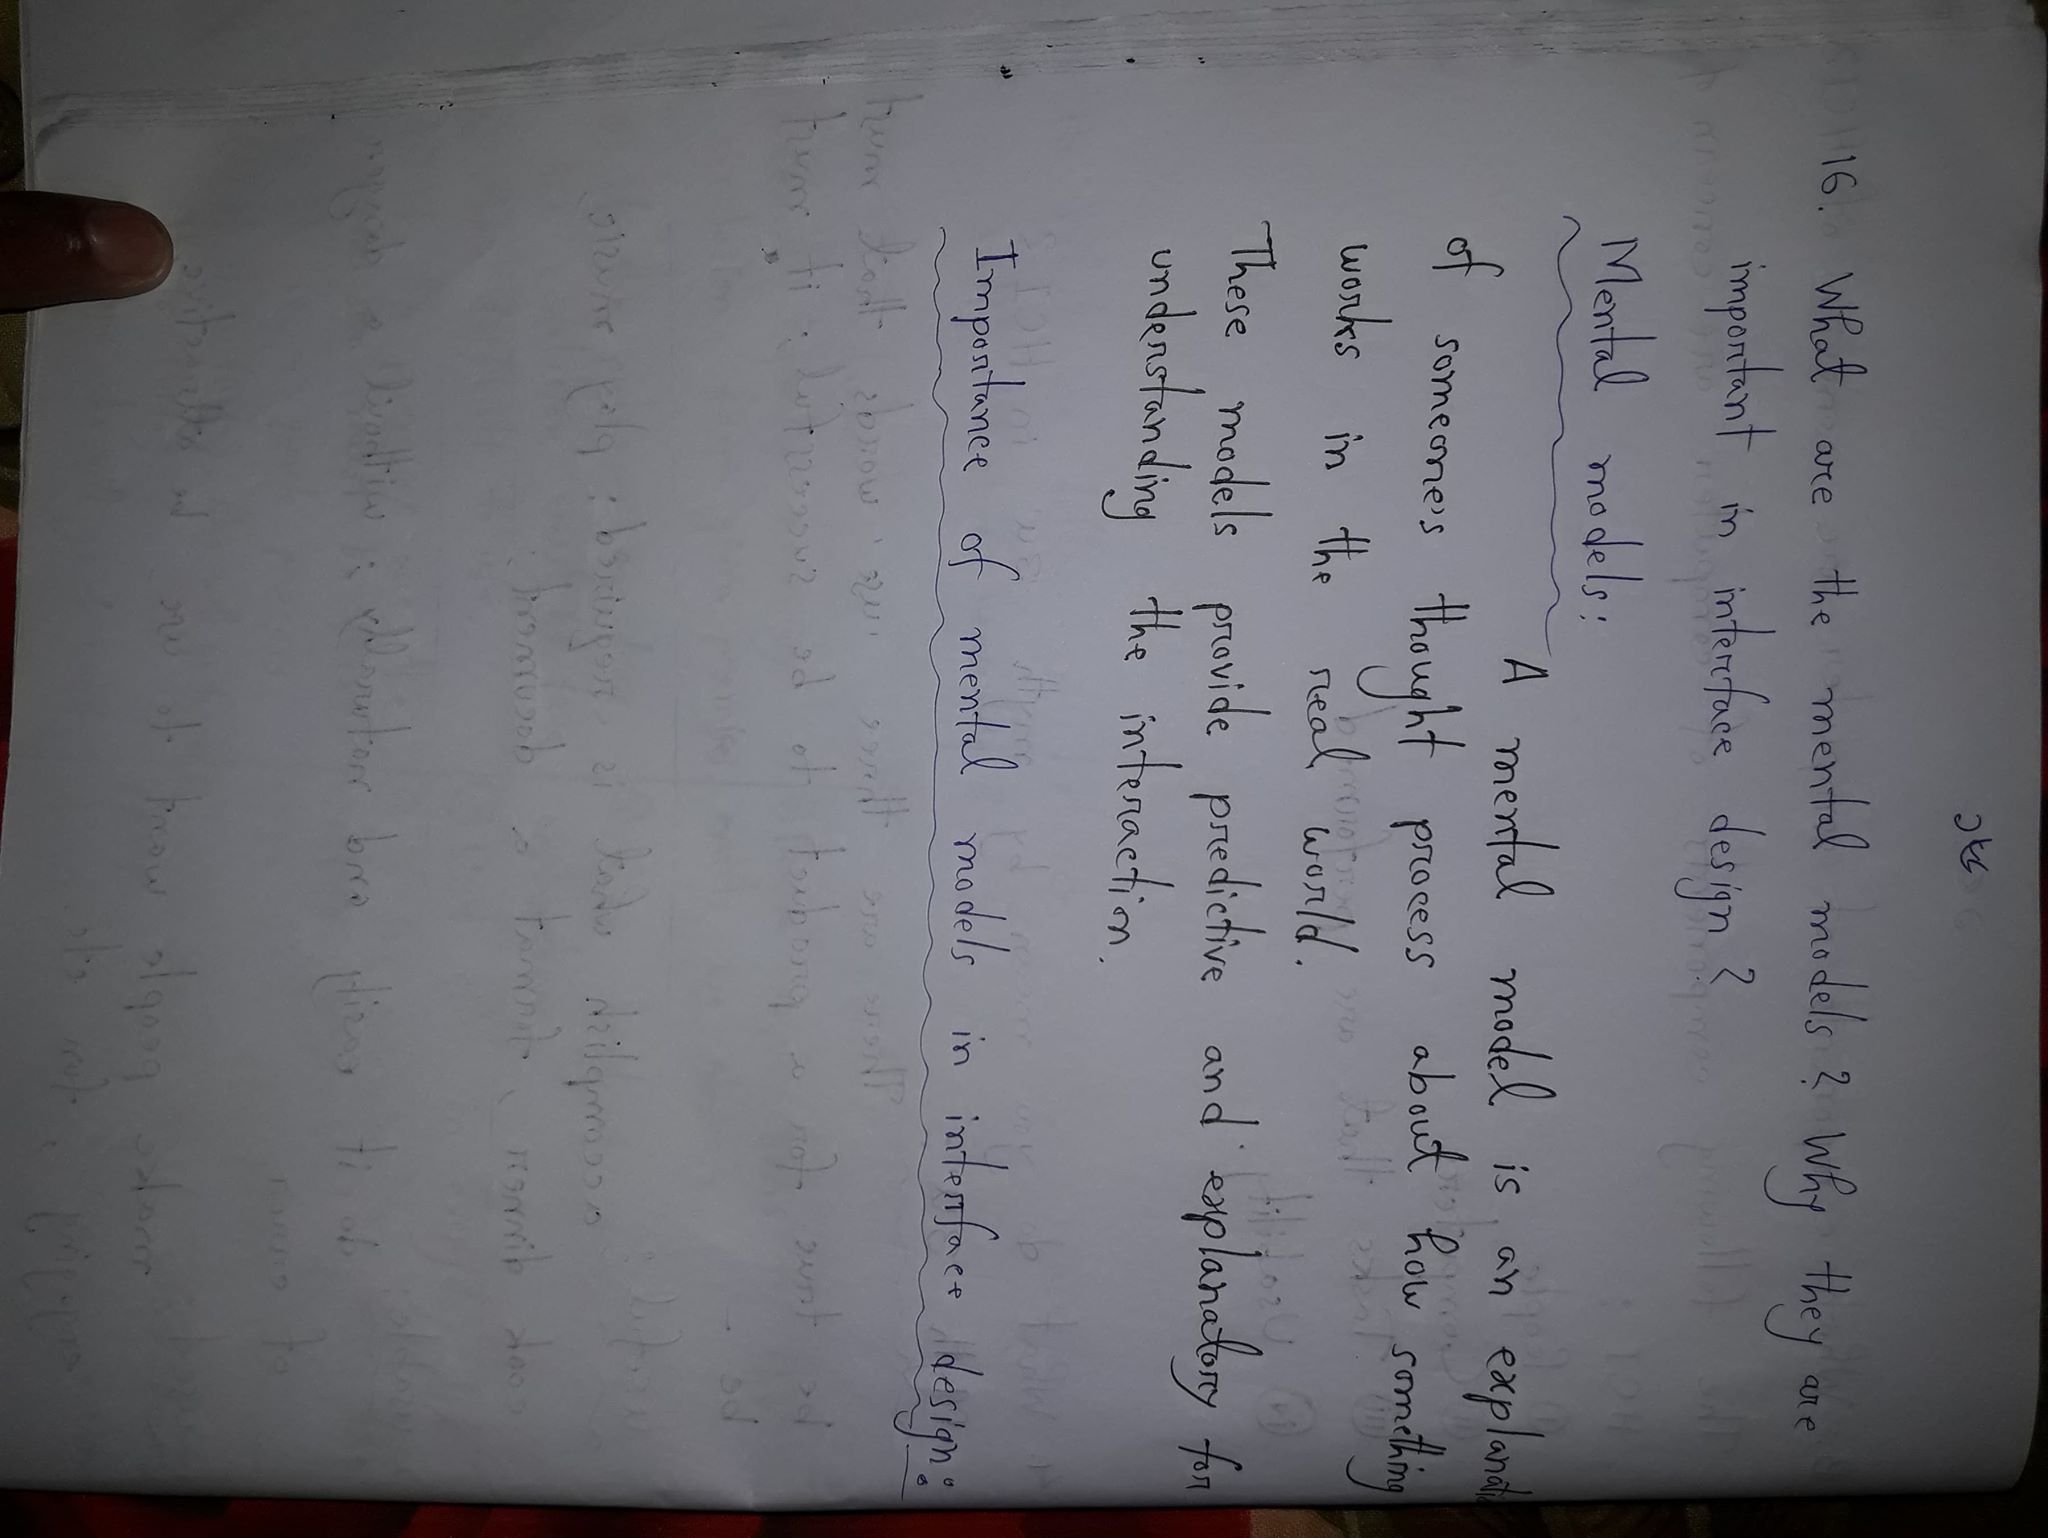 16. What are the mental models? Why they are
important in interface design?
Mental models:
A mental model is an explanati
of someone's thought process about how something
works in the real world.
These models provide predictive and explanatory for
understanding the interaction.
Importance of mental models in interface design: